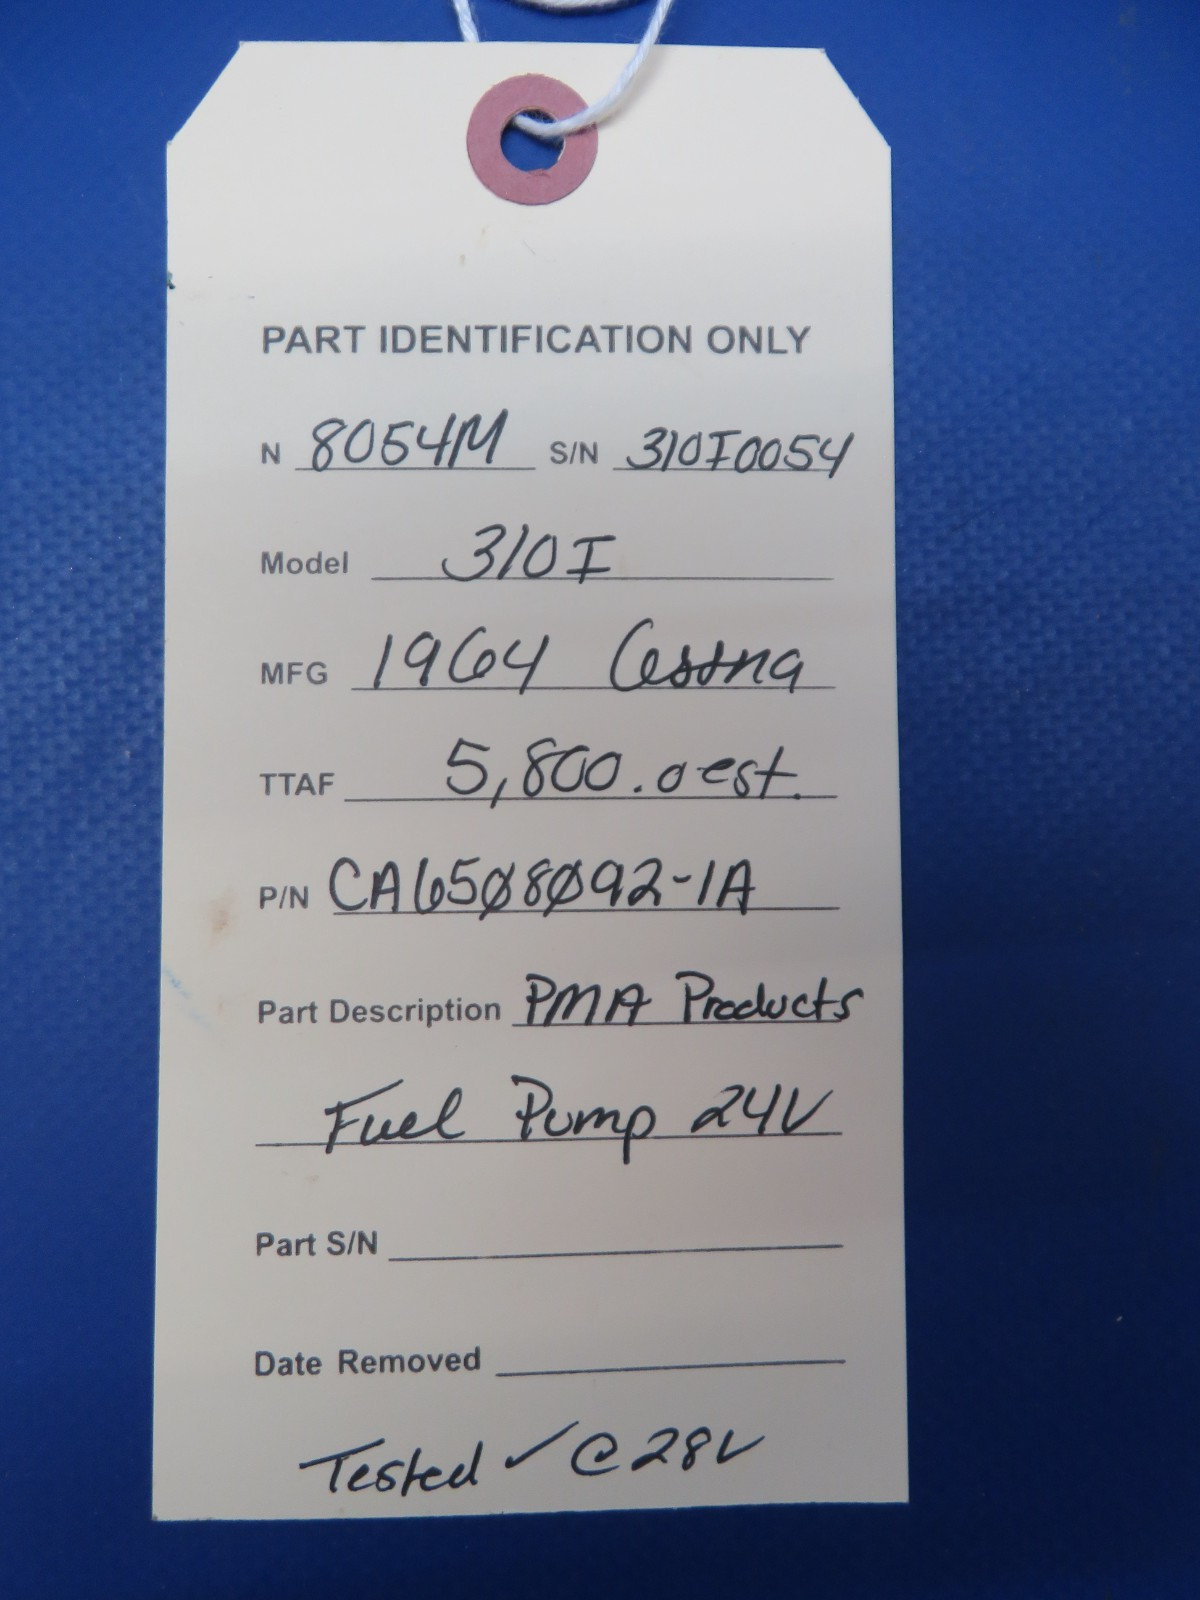 PART IDENTIFICATION ONLY
N 8054M S/N 310I0054
Model 310I
MFG 1964 Cessna
TTAF 5,800.0 est.
P/N CA65Ø8Ø92-1A
Part Description PMA Products
Fuel Pump 24V
Part S/N
Date Removed
Tested ✓ @ 28V